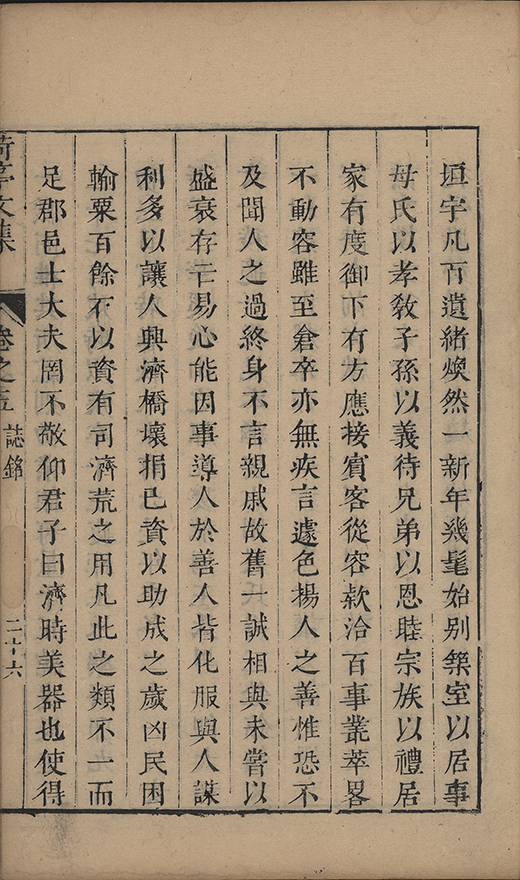 垣宇凡百遺緒煥然一新年幾髦始别築室以居事
母氏以孝敎子孫以義待兄弟以恩睦宗族以禮居
家有度御下有方應接賓客從容款洽百事叢萃畧
不動容雖至倉卒亦無疾言遽色揚人之善惟恐不
及聞人之過終身不言親戚故舊一誠相與未嘗以
盛衰存亡易心能因事導人於善人皆化服與人謀
利多以讓人興濟橋壞捐己資以助成之歲凶民困
輸粟百餘石以資有司濟荒之用凡此之類不一而
足郡邑士大夫罔不敬仰君子曰濟時美器也使得
亭文集 卷之五 誌銘 二十六